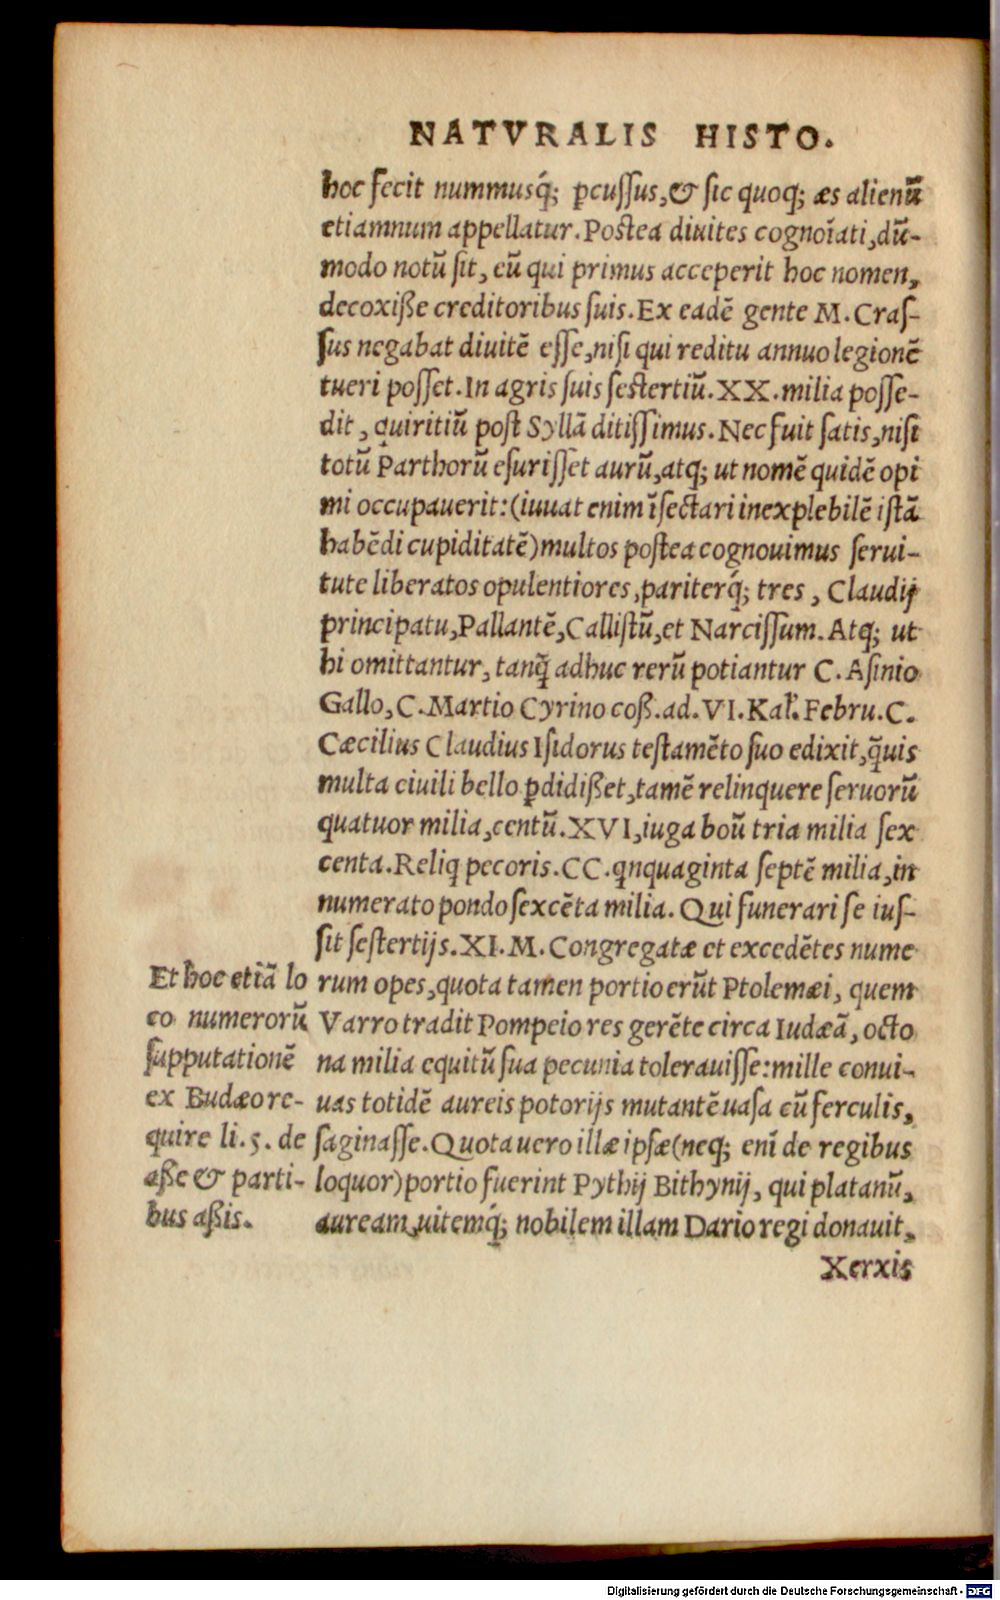 NATVRALIS HISTO.
hoc fecit nummusq́; ꝑcussus, & sic quoq; æs alienū
etiamnum appellatur. Postea diuites cognoīati, dū-
modo notū sit, eū qui primus acceperit hoc nomen,
decoxiße creditoribus suis. Ex eadē gente M. Cras-
sus negabat diuitē esse, nisi qui reditu annuo legionē
tueri posset. In agris suis sestertiū. XX. milia posse-
dit, quiritiū post Syllā ditissimus. Nec fuit satis, nisi
totū Parthorū esurisset aurū, atq; ut nomē quidē opi
mi occupauerit: (iuuat enim īsectari inexplebilē istā
habēdi cupiditatē) multos postea cognouimus serui-
tute liberatos opulentiores, pariterq́; tres, Claudij
principatu, Pallantē, Callistū, et Narcissum. Atq; ut
hi omittantur, tanq̄ adhuc rerū potiantur C. Asinio
Gallo, C. Martio Cyrino coß. ad. VI. Kal. Febru. C.
Cæcilius Claudius Isidorus testamēto suo edixit, q̄uis
multa ciuili bello ꝑdidißet, tamē relinquere seruorū
quatuor milia, centū. XVI, iuga boū tria milia sex
centa. Reliq pecoris. CC. qnquaginta septē milia, in
numerato pondo sexcēta milia. Qui funerari se ius-
sit sestertijs. XI. M. Congregatæ et excedētes nume
rum opes, quota tamen portio erūt Ptolemæi, quem
Varro tradit Pompeio res gerēte circa Iudæā, octo
na milia equitū sua pecunia tolerauisse: mille conui-
uas totidē aureis potorijs mutantē uasa cū ferculis,
saginasse. Quota uero illæ ipsæ (neq; enī de regibus
loquor) portio fuerint Pythij Bithynij, qui platanū,
auream, uitemq́; nobilem illam Dario regi donauit,
Xerxis
Et hoc etiā lo
co numerorū
supputationē
ex Budæo re-
quire li. 5. de
aße & parti-
bus aßis.
Digitalisierung gefördert durch die Deutsche Forschungsgemeinschaft - DFG